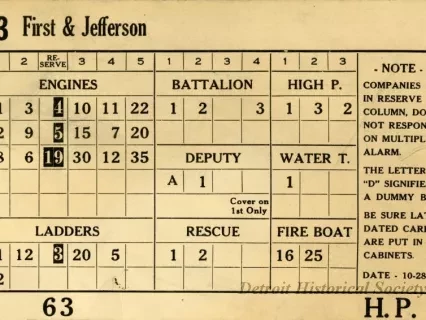 3 First & Jefferson
2 RE-SERVE 3 4 5 1 2 3 4 1 2 3
ENGINES BATTALION HIGH P.
1 3 4 10 11 22 1 2 3 1 3 2
2 9 5 15 7 20
8 6 19 30 12 35 DEPUTY WATER T.
A 1 1
Cover on
1st Only
LADDERS RESCUE FIRE BOAT
1 12 3 20 5 1 2 16 25
2
- NOTE -
COMPANIES
IN RESERVE
COLUMN, DO
NOT RESPON
ON MULTIPL
ALARM.
THE LETTER
"D" SIGNIFIE
A DUMMY B
BE SURE LAT
DATED CARD
ARE PUT IN
CABINETS.
DATE - 10-28
Detroit Historical Society
63 H.P.